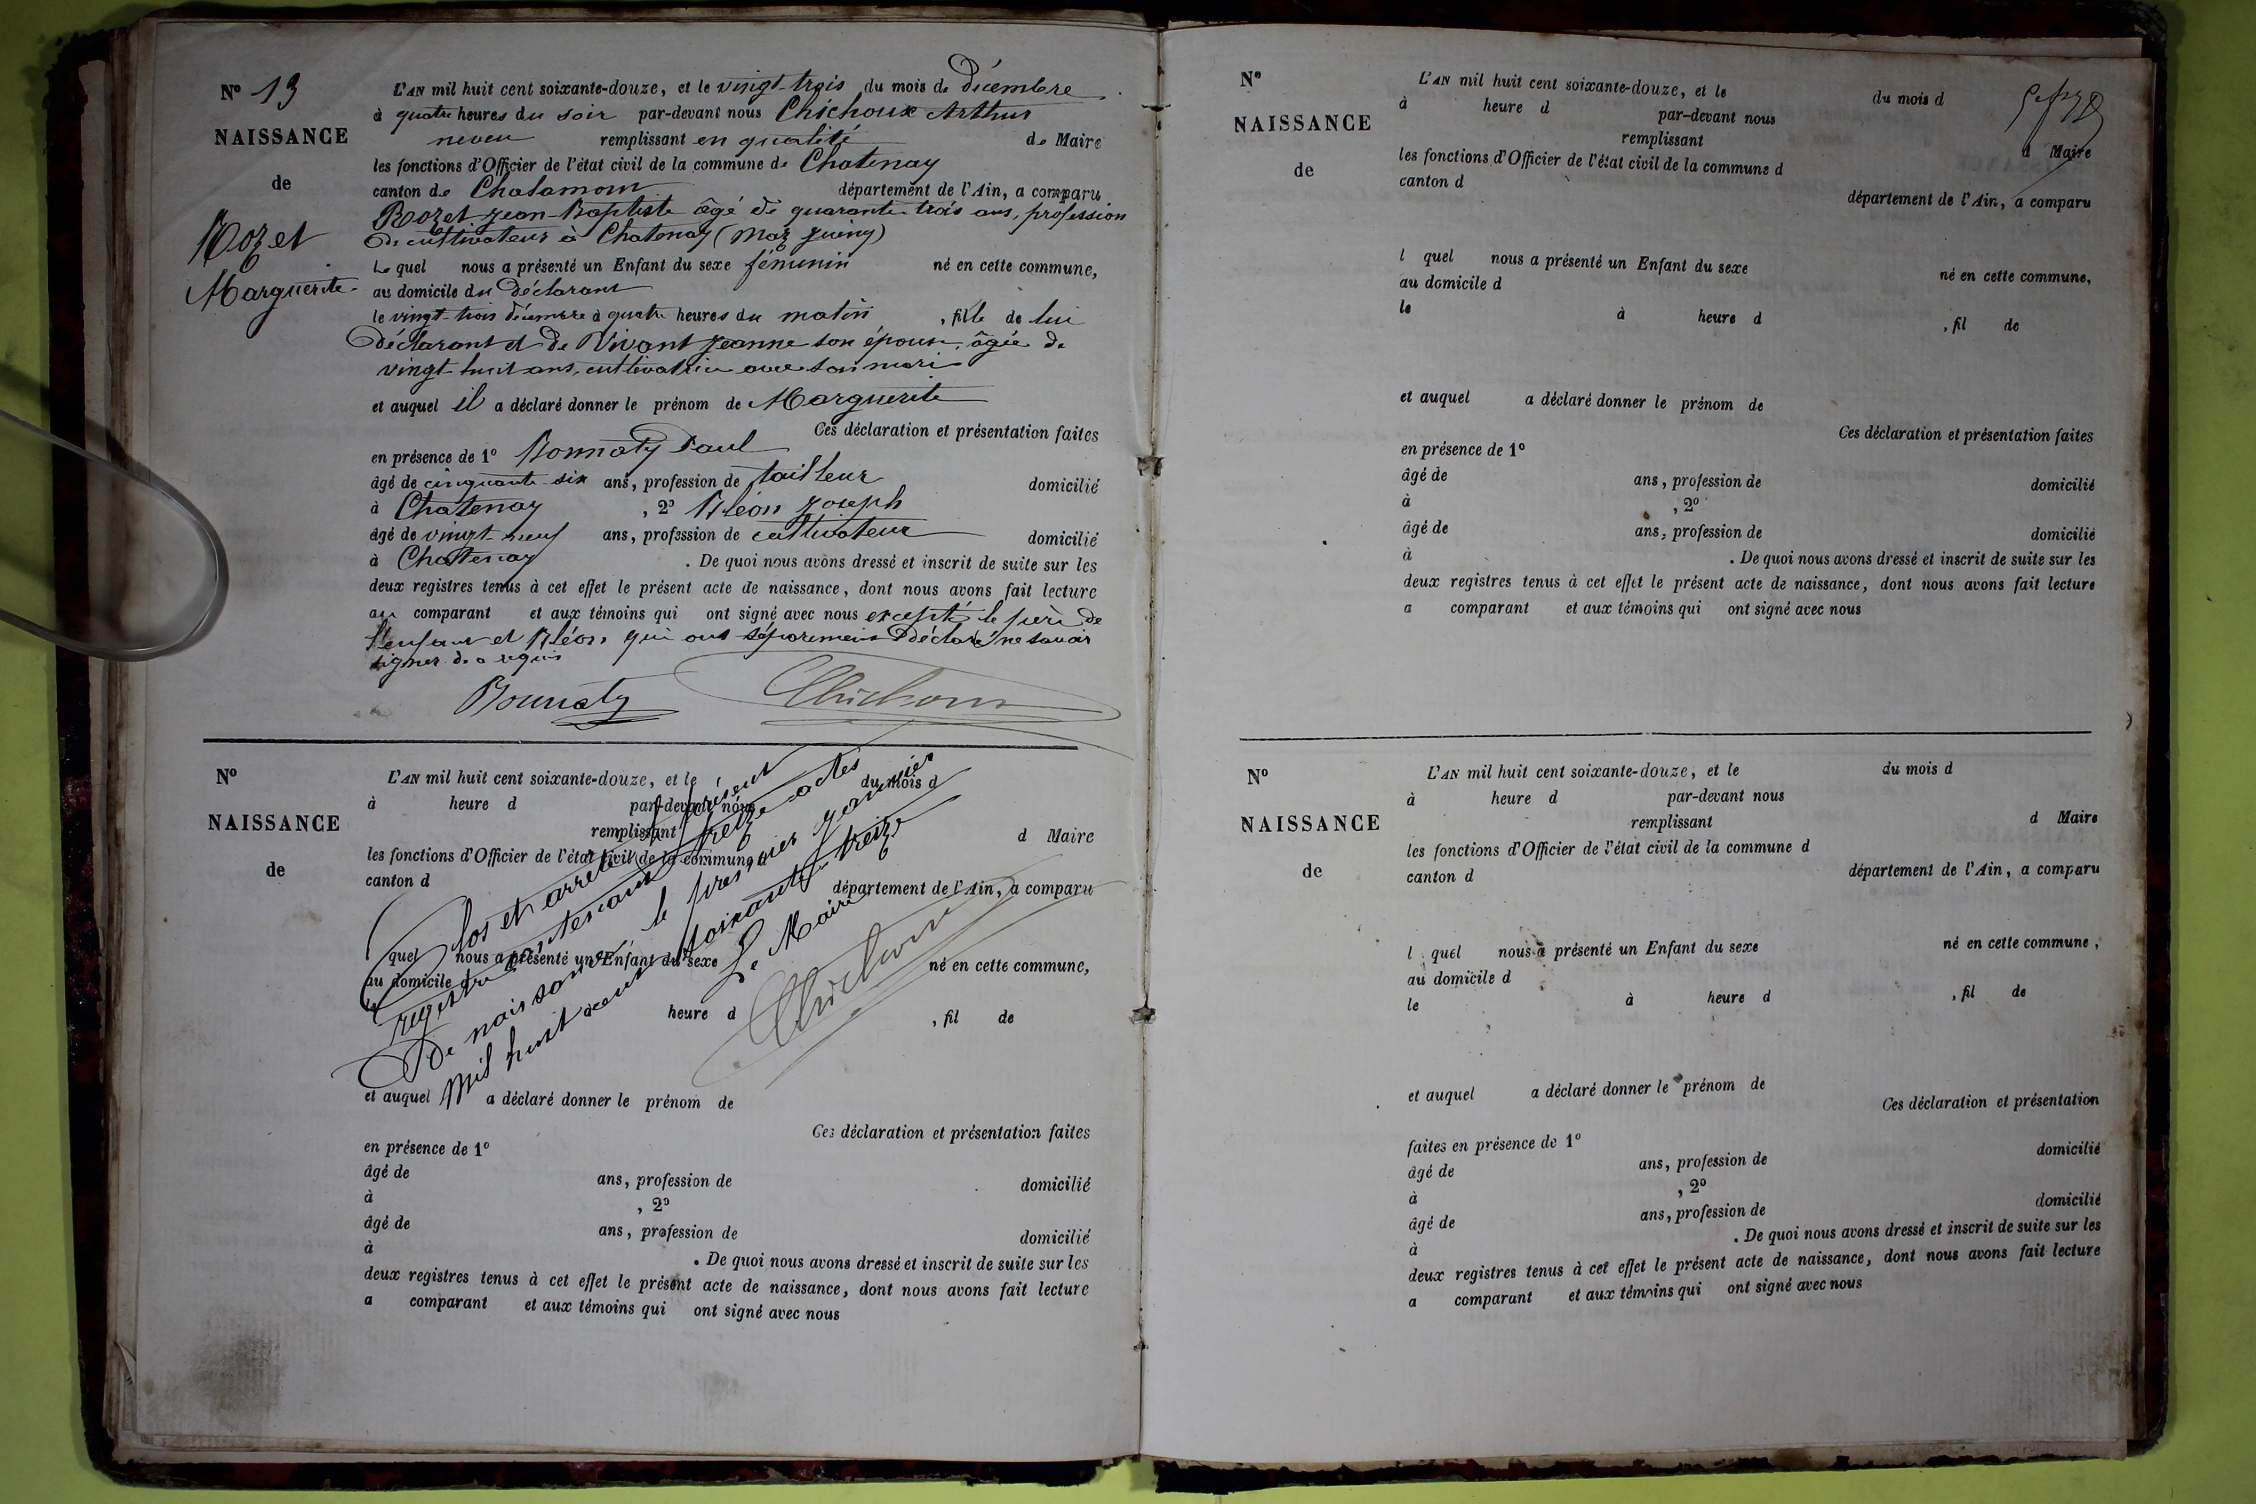 N° 13
NAISSANCE
de
Rozet
Marguerite
L'AN mil huit cent soixante-douze, et le vingt-trois du mois de décembre
à quatre heures du soir par-devant nous Chichoux Arthur
neveu remplissant en qualité de Maire
les fonctions d'Officier de l'état civil de la commune de Chatenay
canton de Chalamont département de l'Ain, a comparu
Rozet Jean-Baptiste âgé de quarante-trois ans, profession
de cultivateur à Chatenay
Le quel nous a présenté un Enfant du sexe féminin né en cette commune,
au domicile du déclarant
le vingt-trois décembre à quatre heures du matin, fille de lui
déclarant et de Vivant Jeanne son épouse, âgée de
vingt-huit ans, cultivatrice avec son mari
et auquel il a déclaré donner le prénom de Marguerite
Ces déclaration et présentation faites
en présence de 1° Bonnaty Paul
âgé de cinquante-six ans, profession de tailleur domicilié
à Chatenay, 2° Bléon Joseph
âgé de vingt-neuf ans, profession de cultivateur domicilié
à Chatenay. De quoi nous avons dressé et inscrit de suite sur les
deux registres tenus à cet effet le présent acte de naissance, dont nous avons fait lecture
au comparant et aux témoins qui ont signé avec nous excepté le père de
l'enfant et Bléon qui ont séparément déclaré ne savoir
signer de ce requis
Bonnaty Chichoux
N°
NAISSANCE
de
L'AN mil huit cent soixante-douze, et le du mois d
à heure d par-devant nous
remplissant d Maire
les fonctions d'Officier de l'état civil de la commune d
canton d département de l'Ain, a comparu
quel nous a présenté un Enfant du sexe né en cette commune,
au domicile d
le heure d, fil de
Clos et arrêté le présent
registre contenant treize actes
de naissance le premier janvier
mil huit cent soixante-treize
Le Maire
Chichoux
et auquel a déclaré donner le prénom de
Ces déclaration et présentation faites
en présence de 1°
âgé de ans, profession de domicilié
à , 2°
âgé de ans, profession de domicilié
à . De quoi nous avons dressé et inscrit de suite sur les
deux registres tenus à cet effet le présent acte de naissance, dont nous avons fait lecture
a comparant et aux témoins qui ont signé avec nous
N°
NAISSANCE
de
L'AN mil huit cent soixante-douze, et le du mois d
à heure d par-devant nous
remplissant d Maire
les fonctions d'Officier de l'état civil de la commune d
canton d département de l'Ain, a comparu
l quel nous a présenté un Enfant du sexe né en cette commune,
au domicile d
le à heure d, fil de
et auquel a déclaré donner le prénom de
Ces déclaration et présentation faites
en présence de 1°
âgé de ans, profession de domicilié
à , 2°
âgé de ans, profession de domicilié
à . De quoi nous avons dressé et inscrit de suite sur les
deux registres tenus à cet effet le présent acte de naissance, dont nous avons fait lecture
a comparant et aux témoins qui ont signé avec nous
N°
NAISSANCE
de
L'AN mil huit cent soixante-douze, et le du mois d
à heure d par-devant nous
remplissant d Maire
les fonctions d'Officier de l'état civil de la commune d
canton d département de l'Ain, a comparu
l quel nous a présenté un Enfant du sexe né en cette commune,
au domicile d
le à heure d, fil de
et auquel a déclaré donner le prénom de
Ces déclaration et présentation
faites en présence de 1° domicilié
âgé de ans, profession de
à , 2° domicilié
âgé de ans, profession de
à . De quoi nous avons dressé et inscrit de suite sur les
deux registres tenus à cet effet le présent acte de naissance, dont nous avons fait lecture
a comparant et aux témoins qui ont signé avec nous